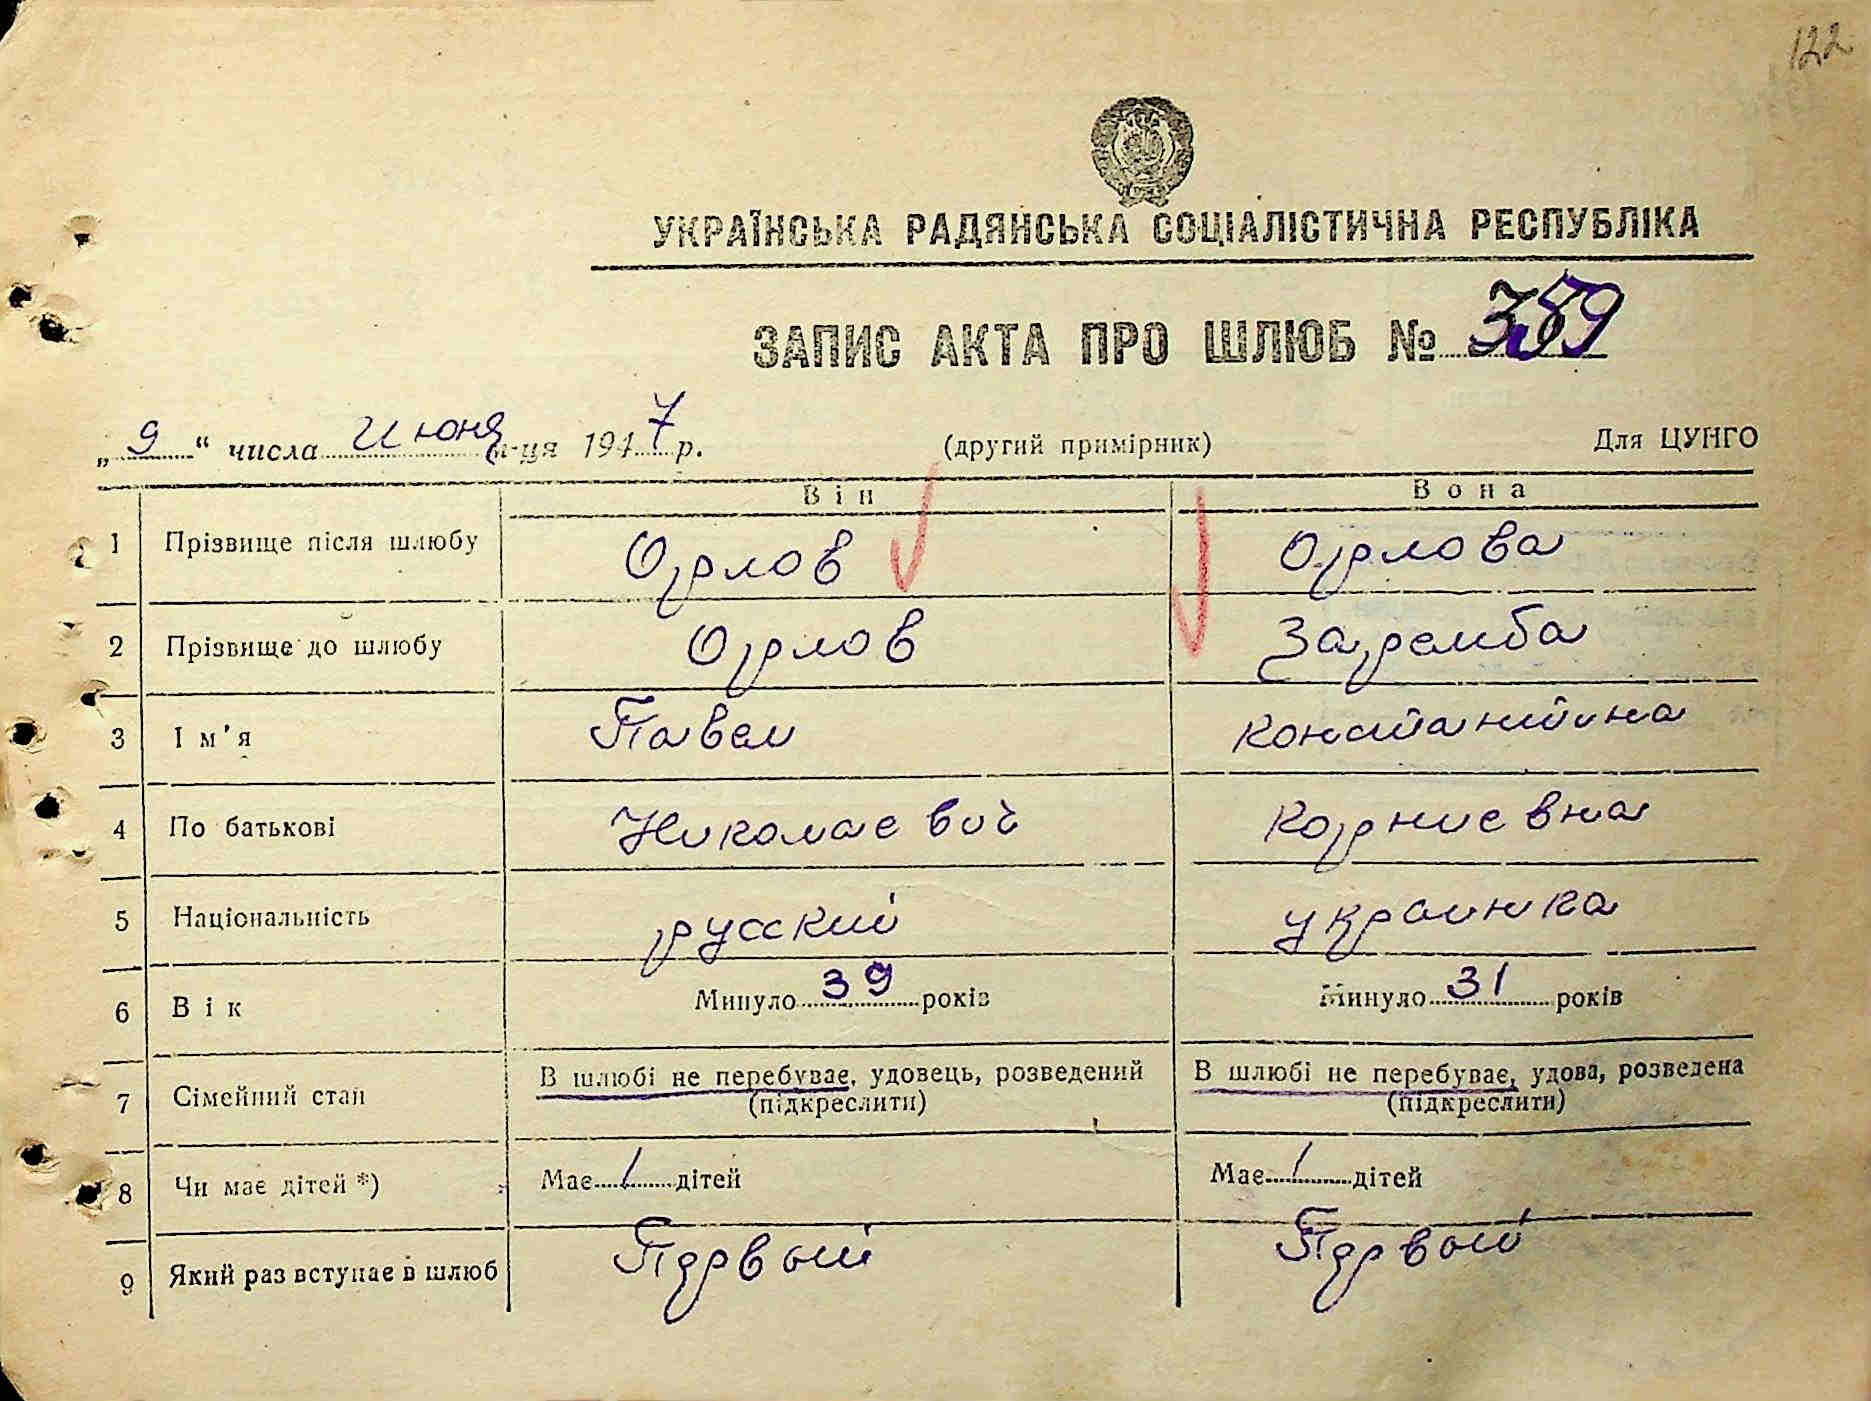 122
УКРАЇНСЬКА РАДЯНСЬКА СОЦІАЛІСТИЧНА РЕСПУБЛІКА
ЗАПИС АКТА ПРО ШЛЮБ № 359
„ 9 “ числа Июня м-ця 1947 р. (другий примірник) Для ЦУНГО
Він Вона
1 Прізвище після шлюбу Орлов Орлова
2 Прізвище до шлюбу Орлов Заремба
3 Ім'я Павел Константина
4 По батькові Николаевич Корниевна
5 Національність русский украинка
6 Вік Минуло 39 років Минуло 31 років
7 Сімейний стан В шлюбі не перебуває, удовець, розведений В шлюбі не перебуває, удова, розведена
(підкреслити) (підкреслити)
8 Чи має дітей *) Має 1 дітей Має 1 дітей
9 Який раз вступає в шлюб Первый Первый